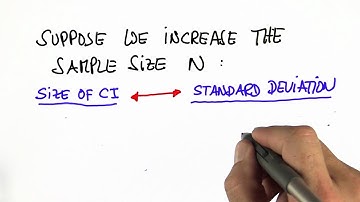 SUPPOSE WE INCREASE THE
SAMPLE SIZE N :
SIZE OF CI ↔ STANDARD DEVIATION